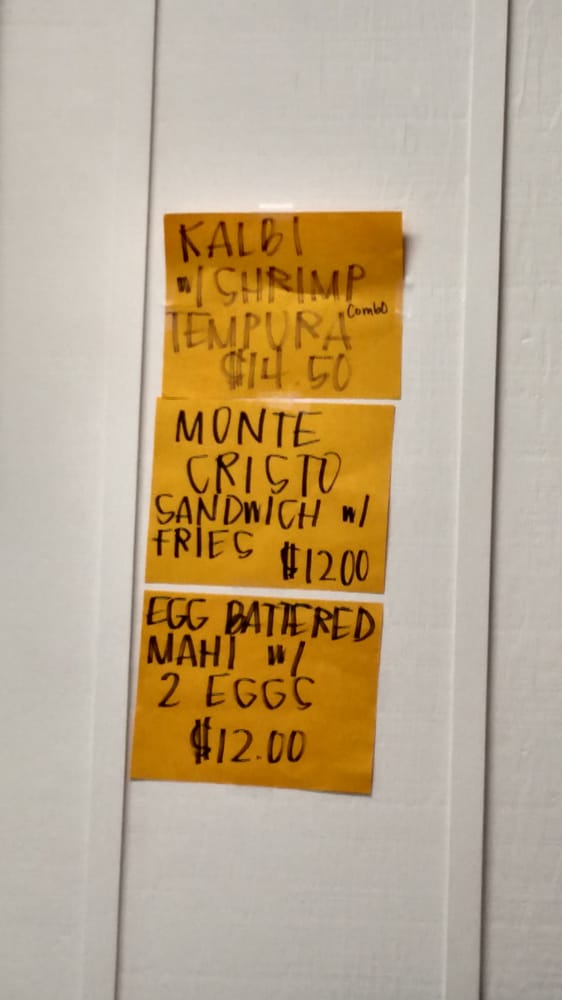 KALBI
w/ SHRIMP
TEMPURA Combo
$14.50
MONTE
CRISTO
SANDWICH w/
FRIES $1200
EGG BATTERED
MAHI w/
2 EGGS
$12.00